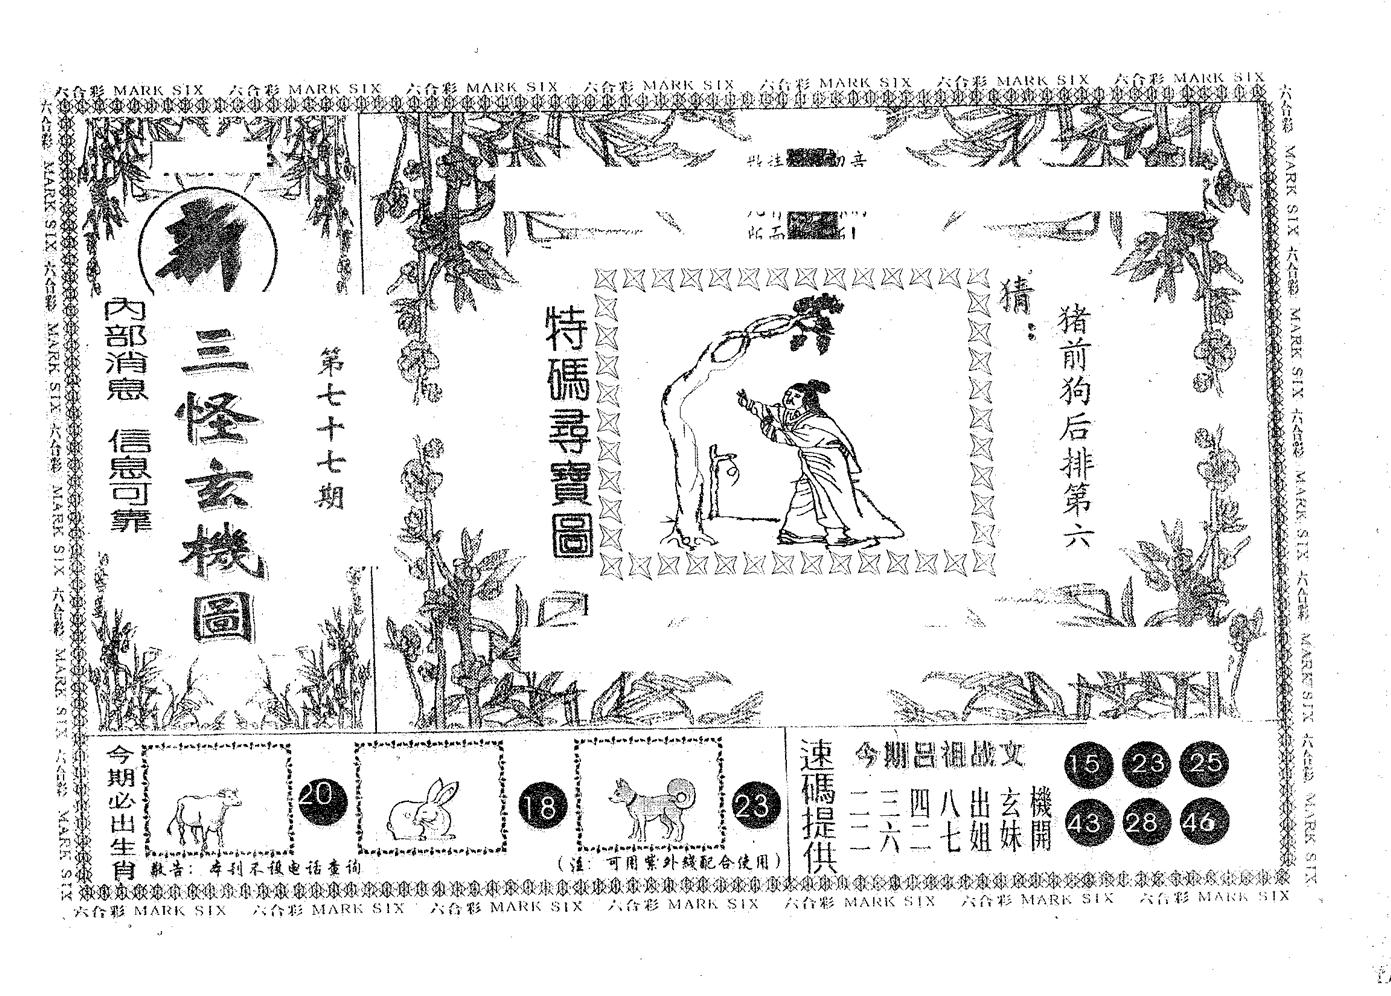 六合彩 MARK SIX 六合彩 MARK SIX 六合彩 MARK SIX 六合彩 MARK SIX 六合彩 MARK SIX 六合彩 MARK SIX 六合彩 MARK SIX
六合彩 MARK SIX 六合彩 MARK SIX 六合彩 MARK SIX 六合彩 MARK SIX 六合彩 MARK SIX
新
三怪玄機圖
內部消息 信息可靠
第七十七期
特碼尋寶圖
猜:
猪前狗后排第六
六合彩 MARK SIX 六合彩 MARK SIX 六合彩 MARK SIX 六合彩 MARK SIX 六合彩 MARK SIX
今期必出生肖
20
18
23
敬告: 本刊不设电话查询
(注: 可用紫外线配合使用)
速碼提供
今期吕祖战文
二三四八出玄機
二六二七姐妹開
15 23 25
43 28 46
六合彩 MARK SIX 六合彩 MARK SIX 六合彩 MARK SIX 六合彩 MARK SIX 六合彩 MARK SIX 六合彩 MARK SIX 六合彩 MARK SIX